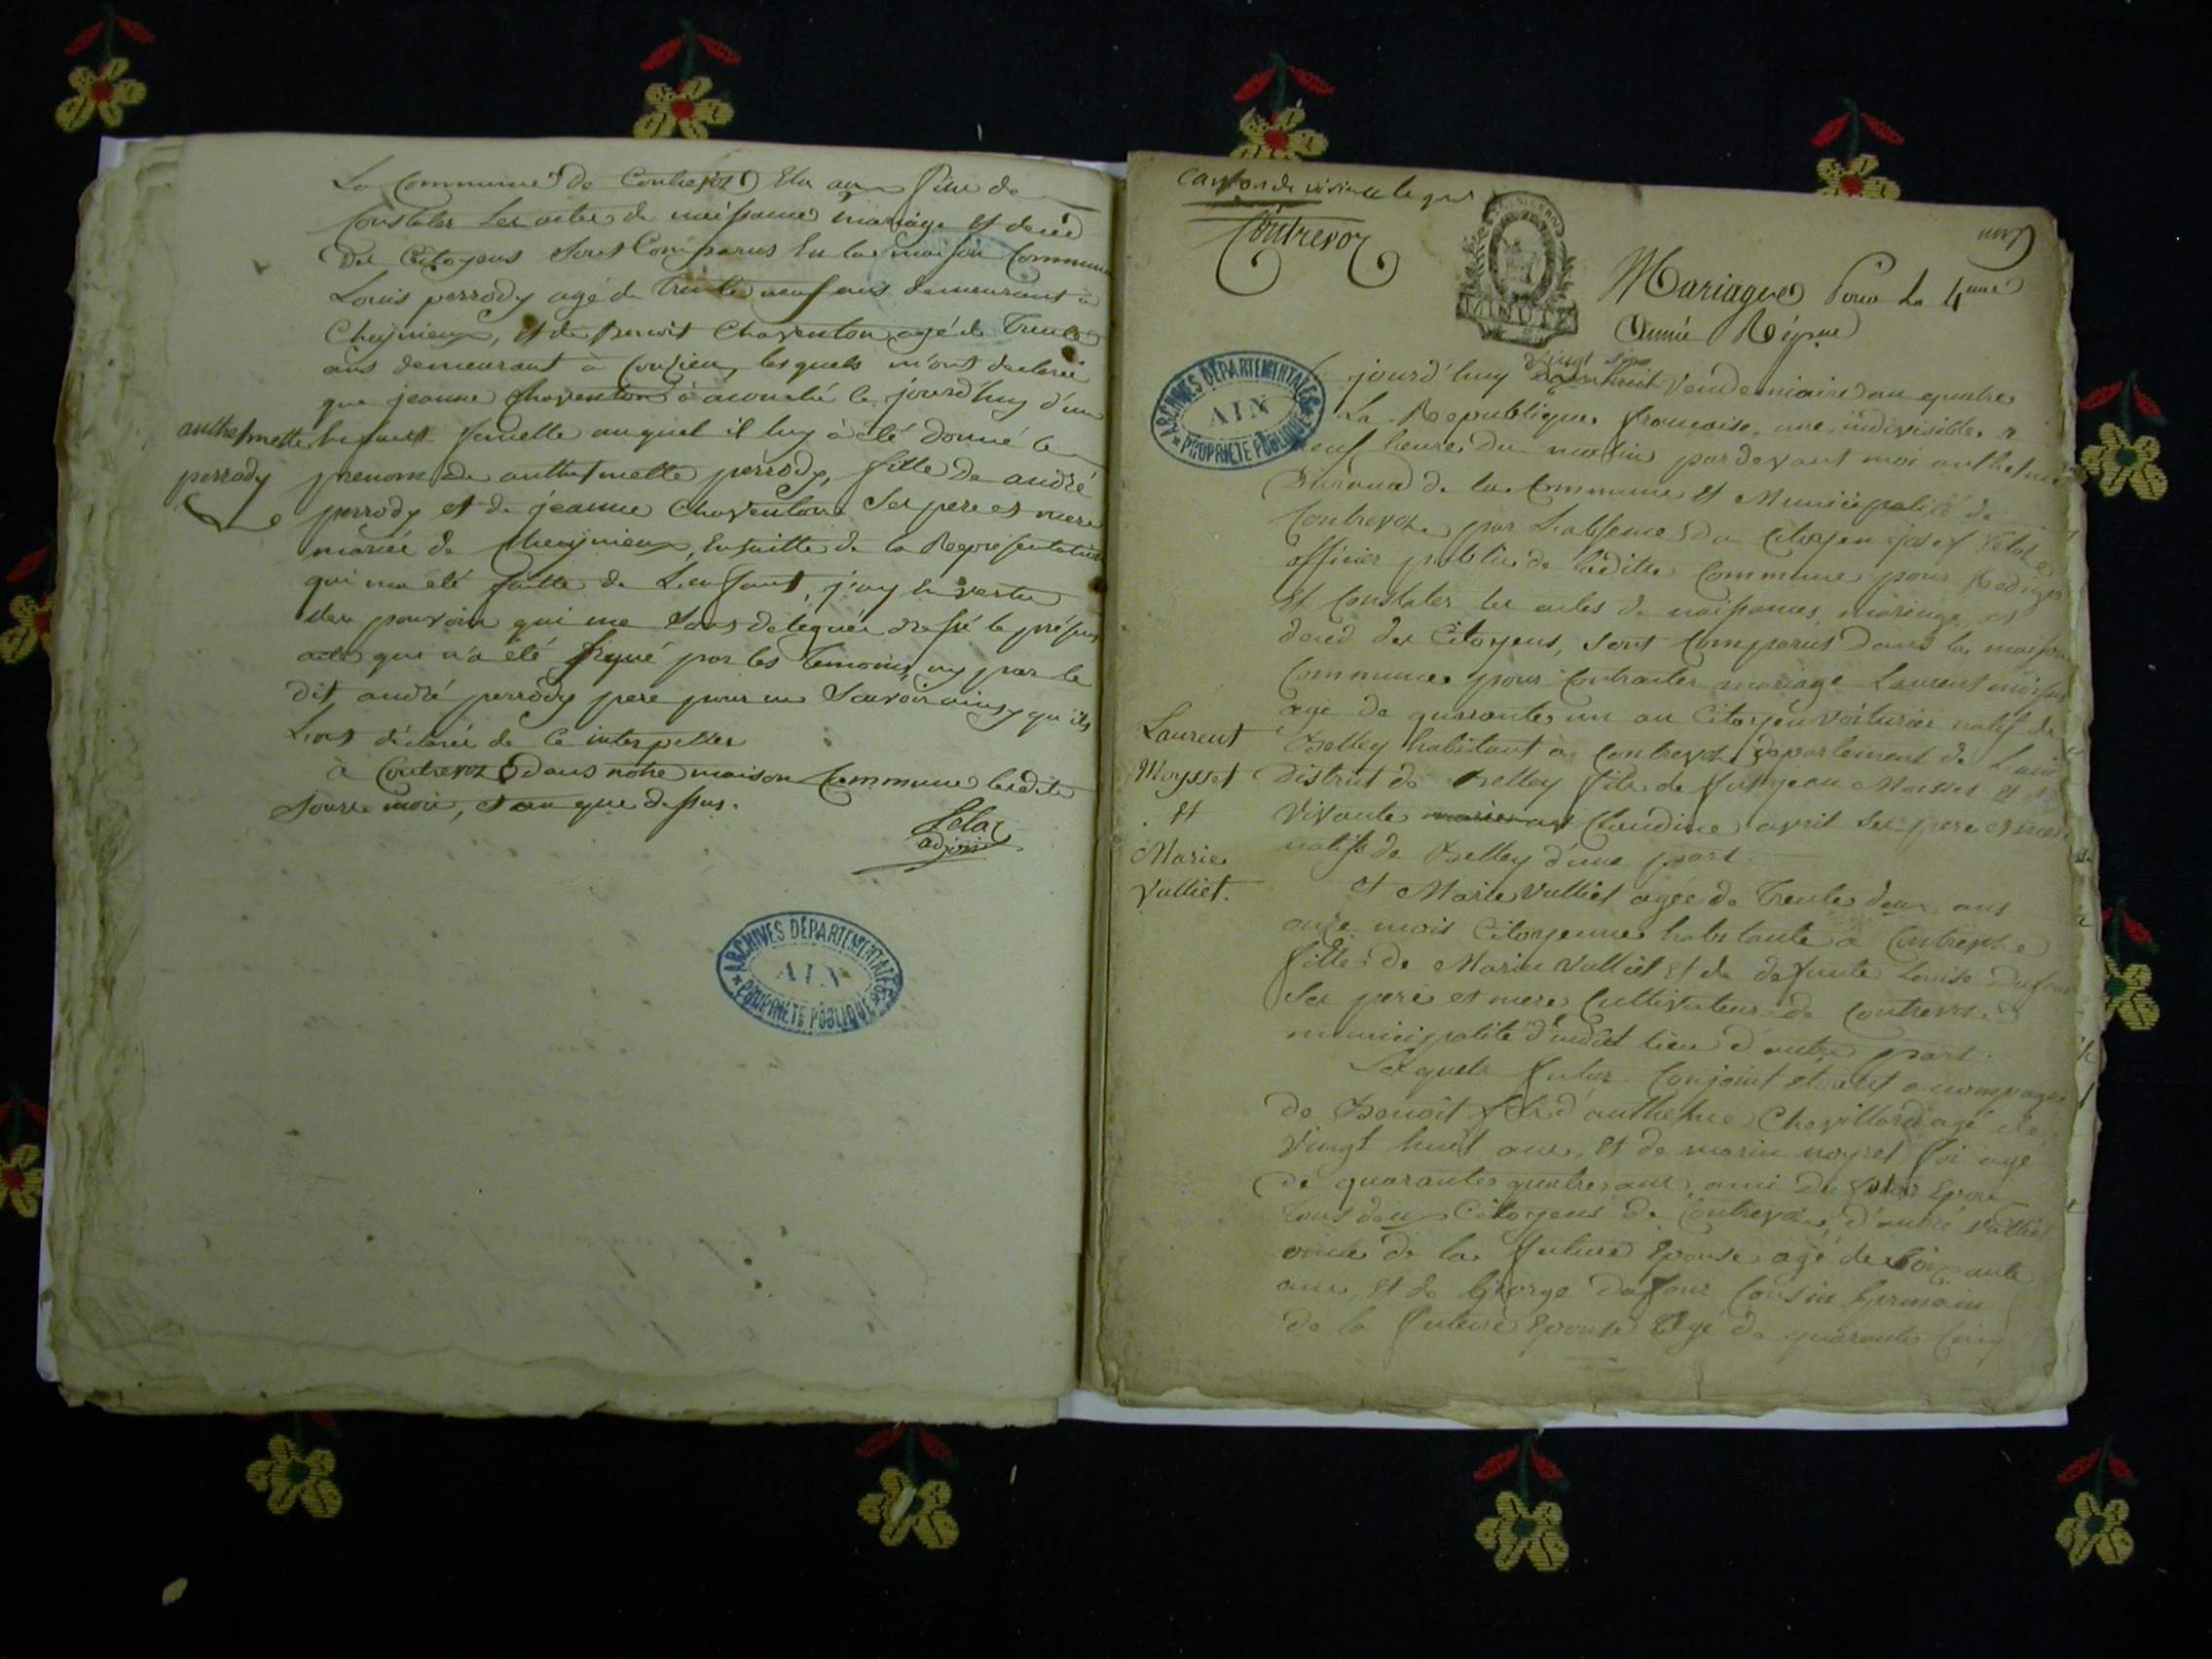 La Commune de Contrevoz Elu aux fins de
Constater les actes de naissance mariage et deced
Des Citoyens sont Comparus En la maison Commune
Louis perrody agé de trente neuf ans demeurant à
Cheynieux, et de benoit Chaventon agé de trente
ans demeurant à Conzieu, lesquels m'ont declaré
que jeanne Chaventon à acouché ce jourd'huy d'un
anthelmette
Enfant femelle auquel il luy à été donné le
perrody
prenom de anthelmette perrody, fille de andré
perrody et de jeanne Chaventon ses pere et mere
mariés de Cheynieux, Ensuitte de la Representation
qui ma été faitte de L'enfant, j'ay En vertu
des pouvoirs qui me sont delegués dressé le présent
acte qui n'a été signé par les temoins, ny par le
dit andré perrody pere pour ne savoir ainsy qu'ils
L'ont déclaré de ce interpeller
à Contrevoz dans notre maison Commune lesdits
jours mois, et an que dessus.
Selaz
adjoint
ARCHIVES DÉPARTEMENTALES
AIN
PROPRIÉTÉ PUBLIQUE
Canton de
Contrevoz
MINUTE
Mariages Pour La 4eme
Année Répue
ARCHIVES DÉPARTEMENTALES
AIN
PROPRIÉTÉ PUBLIQUE
jourd'huy vingt six vendemiaire an quatre
La Republique francoise une indivisible a
neuf heures du matin pardevant moi anthelme
Durand de la Commune et Municipalité de
Contrevoz par L'absence du Citoyen josef Selaz
officier public de ladite Commune pour Rediger
Et Constater les actes de naissances, mariage et
deced des Citoyens, sont Comparus dans la maison
Commune pour Contracter mariage Laurent moisset
agé de quarante un an Citoyen voiturier natif de
Laurent
Belley habitant à Contrevoz departement de L'ain
Moysset
District de Belley fils de fut jean Moisset et
Et
vivante Claudine avril ses pere et mere
Marie
natifs de Belley d'une part.
Vulliet.
Et Marie Vulliet agée de Trente deux ans
onze mois Citoyenne habitante à Contrevoz
fille de Marin Vulliet et de defunte Louise Dufour
Ses pere et mere Cultivateur de Contrevoz
municipalité dudit lieu d'autre part.
Lesquels futur Conjoint étoient acompagné
de Benoit fils d'anthelme Chevillard agé de
vingt huit ans, Et de marin noyret agé
de quarante quatre ans, ami du futur Epoux
tous deux Citoyens de Contrevoz, d'andré Vulliet
oncle de la future Epouse agé de soixante
ans, Et de George Dufour Cousin Germain
de la future Epouse Agé de quarante Cinq